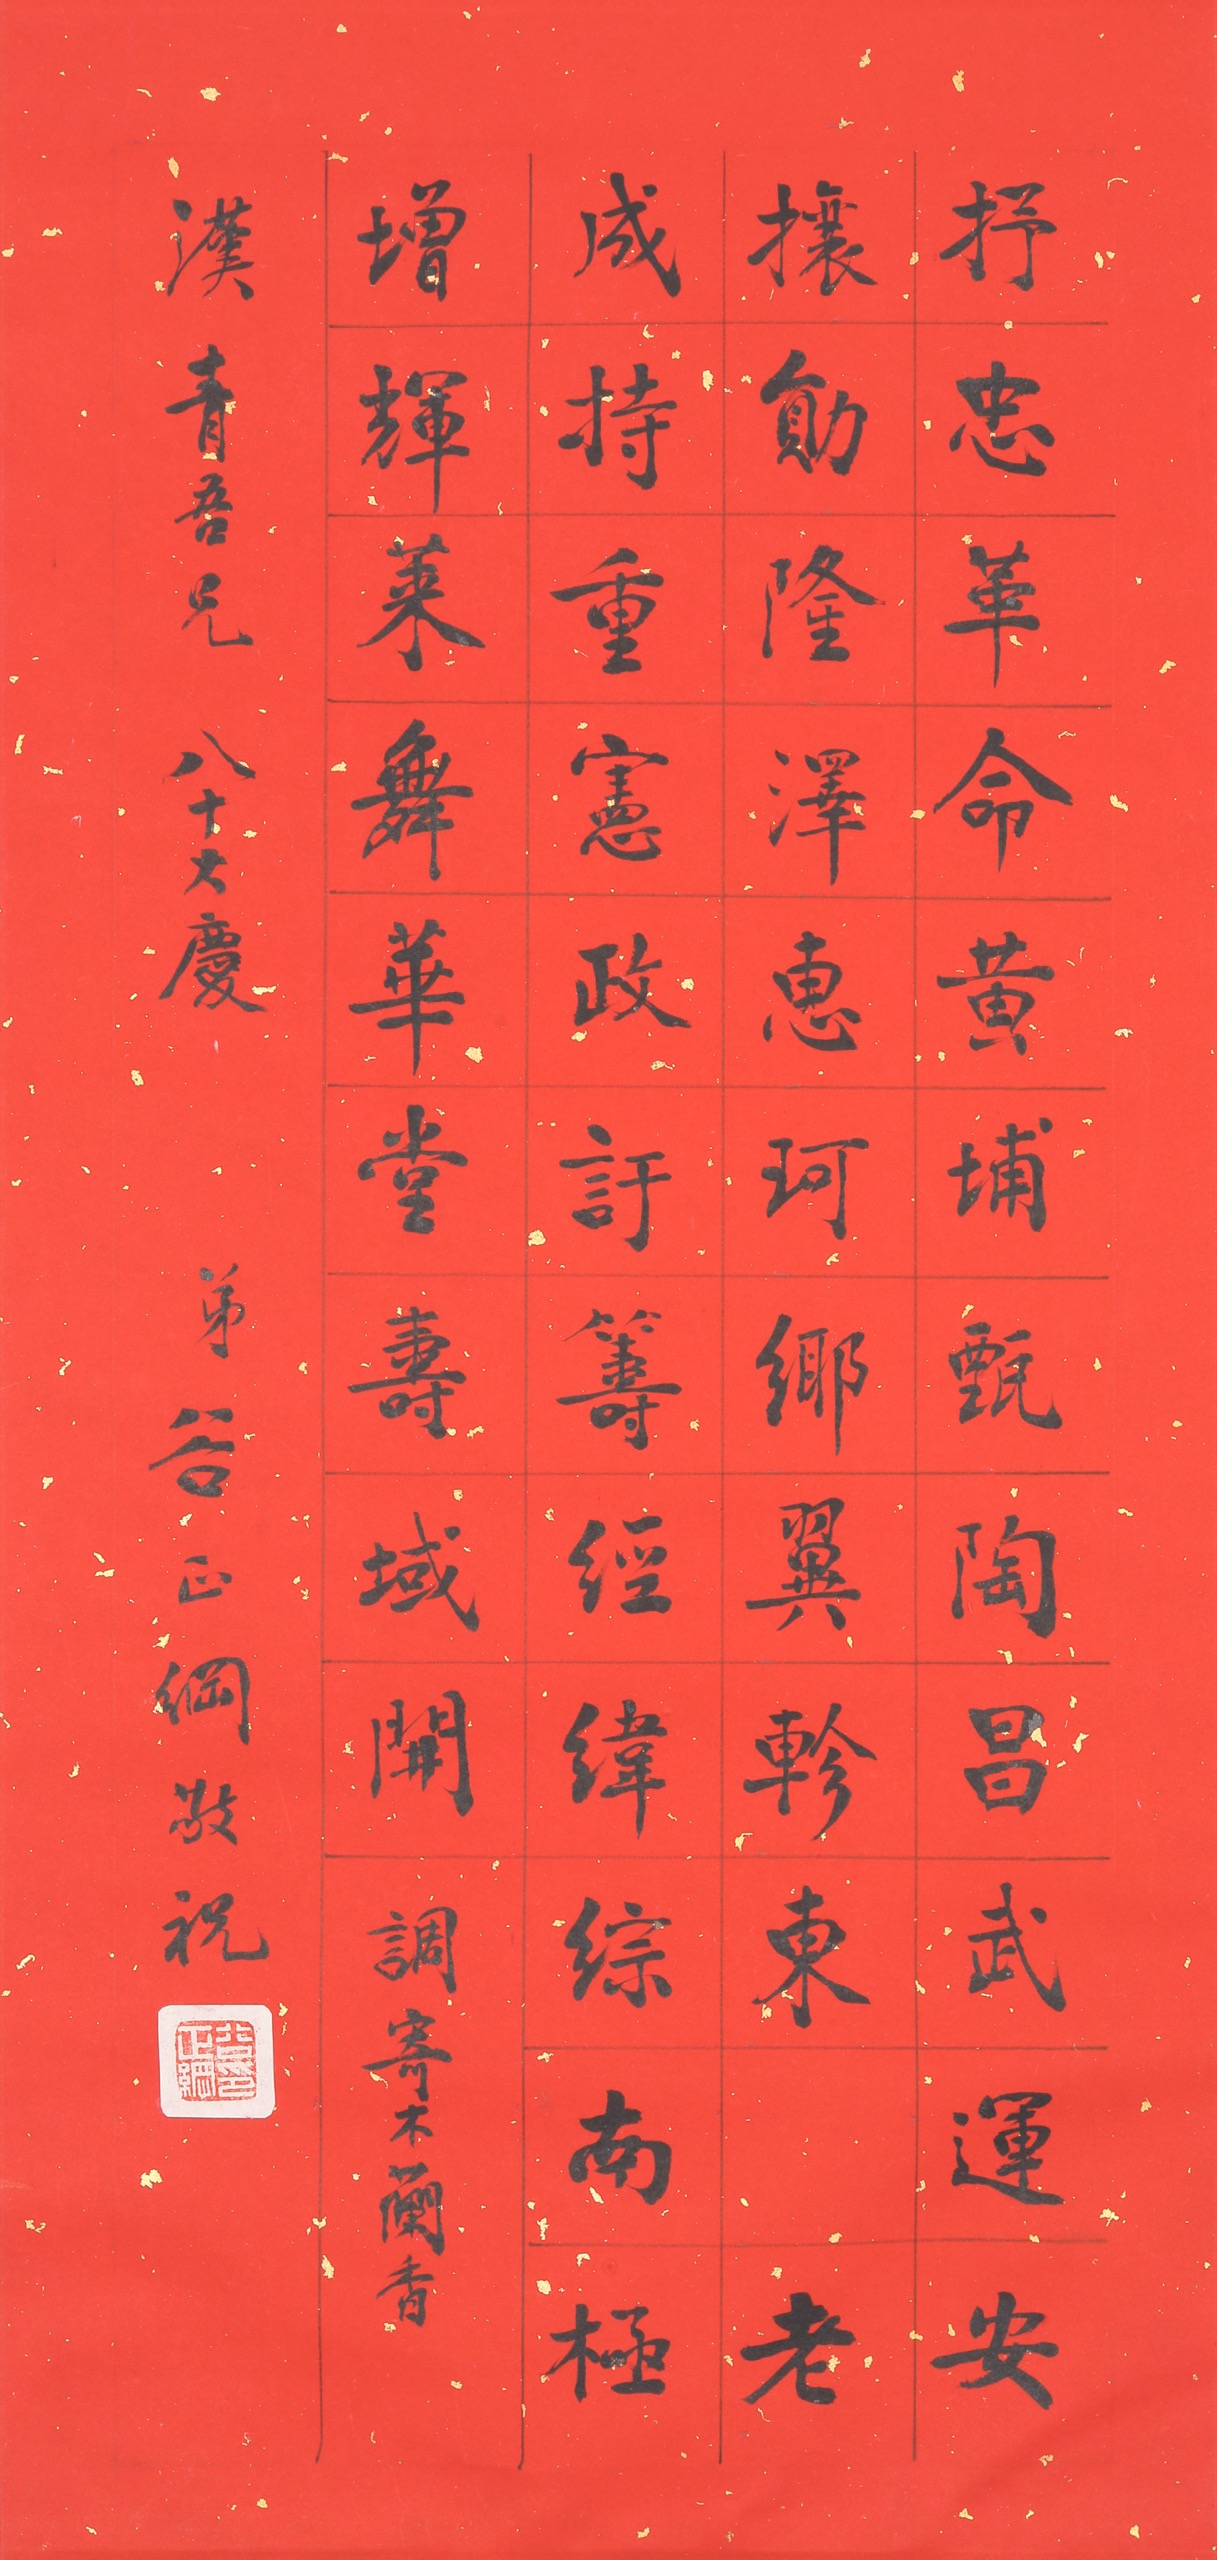 抒忠革命黃埔甄陶昌武運安
攘勛隆澤惠珂鄉翼軫東 老
成持重憲政訏籌經緯綜南極
增輝萊舞華堂壽域開 調寄木蘭香
漢青吾兄 八十大慶 弟谷正綱敬祝
谷正綱印